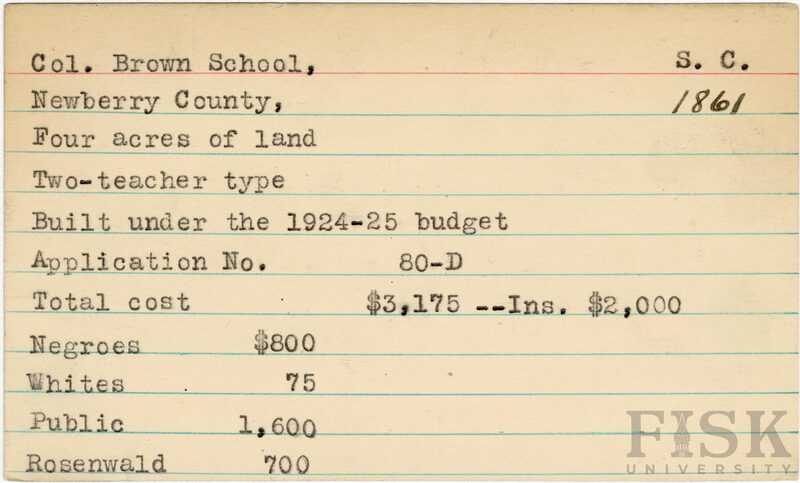 Col. Brown School, S. C.
Newberry County, 1861
Four acres of land
Two-teacher type
Built under the 1924-25 budget
Application No. 80-D
Total cost $3,175 --Ins. $2,000
Negroes $800
Whites 75
Public 1,600
Rosenwald 700
FISK
UNIVERSITY